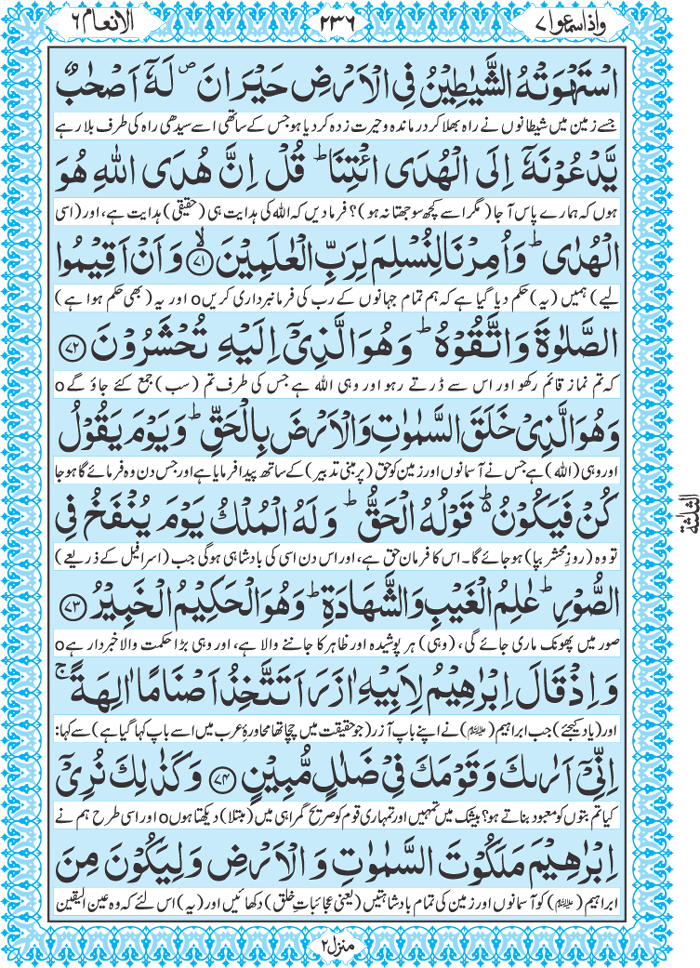 واذا سمعوا ٧ ٢٣٦ الانعام ٦
اسْتَهْوَتْهُ الشَّيٰطِيْنُ فِى الْاَرْضِ حَيْرَانَ ۪ لَهٗۤ اَصْحٰبٌ
جسے زمین میں شیطانوں نے راہ بھلا کر درماندہ و حیرت زدہ کر دیا ہو جس کے ساتھی اسے سیدھی راہ کی طرف بلا رہے
يَّدْعُوْنَهٗۤ اِلَى الْهُدَى ائْتِنَا ؕ قُلْ اِنَّ هُدَى اللّٰهِ هُوَ
ہوں کہ ہمارے پاس آ جا (مگر اسے کچھ سوجھتا نہ ہو)؟ فرما دیں کہ اللہ کی ہدایت ہی (حقیقی) ہدایت ہے، اور (اسی
الْهُدٰى ؕ وَاُمِرْنَا لِنُسْلِمَ لِرَبِّ الْعٰلَمِيْنَ ۙ﴿٧١﴾ وَاَنْ اَقِيْمُوا
لیے) ہمیں (یہ) حکم دیا گیا ہے کہ ہم تمام جہانوں کے رب کی فرمانبرداری کریں o اور یہ (بھی حکم ہوا ہے)
الصَّلٰوةَ وَاتَّقُوْهُ ؕ وَهُوَ الَّذِىْۤ اِلَيْهِ تُحْشَرُوْنَ ﴿٧٢﴾
کہ تم نماز قائم رکھو اور اس سے ڈرتے رہو اور وہی اللہ ہے جس کی طرف تم (سب) جمع کئے جاؤ گے o
وَهُوَ الَّذِىْ خَلَقَ السَّمٰوٰتِ وَالْاَرْضَ بِالْحَقِّ ؕ وَيَوْمَ يَقُوْلُ
اور وہی (اللہ) ہے جس نے آسمانوں اور زمین کو حق (پر مبنی تدبیر) کے ساتھ پیدا فرمایا ہے اور جس دن وہ فرمائے گا ہو جا
كُنْ فَيَكُوْنُ ؕ قَوْلُهُ الْحَقُّ ؕ وَلَهُ الْمُلْكُ يَوْمَ يُنْفَخُ فِى
تو وہ (روزِ محشر بپا) ہو جائے گا۔ اس کا فرمان حق ہے، اور اس دن اسی کی بادشاہی ہوگی جب (اسرافیل کے ذریعے)
الصُّوْرِ ؕ عٰلِمُ الْغَيْبِ وَالشَّهَادَةِ ؕ وَهُوَ الْحَكِيْمُ الْخَبِيْرُ ﴿٧٣﴾
صور میں پھونک ماری جائے گی، (وہی) ہر پوشیدہ اور ظاہر کا جاننے والا ہے، اور وہی بڑا حکمت والا خبردار ہے o
وَاِذْ قَالَ اِبْرٰهِيْمُ لِاَبِيْهِ اٰزَرَ اَتَتَّخِذُ اَصْنَامًا اٰلِهَةً ۚ
اور (یاد کیجئے) جب ابراہیم (علیہ السلام) نے اپنے باپ آزر (جو حقیقت میں چچا تھا محاورۂ عرب میں اسے باپ کہا گیا ہے) سے کہا:
اِنِّىْۤ اَرٰىكَ وَقَوْمَكَ فِىْ ضَلٰلٍ مُّبِيْنٍ ﴿٧٤﴾ وَكَذٰلِكَ نُرِىْۤ
کیا تم بتوں کو معبود بناتے ہو؟ بیشک میں تمہیں اور تمہاری قوم کو صریح گمراہی میں (مبتلا) دیکھتا ہوں o اور اسی طرح ہم نے
اِبْرٰهِيْمَ مَلَكُوْتَ السَّمٰوٰتِ وَالْاَرْضِ وَلِيَكُوْنَ مِنَ
ابراہیم (علیہ السلام) کو آسمانوں اور زمین کی تمام بادشاہتیں (یعنی عجائباتِ خلق) دکھائیں اور (یہ) اس لئے کہ وہ عین الیقین
الثلثة
منزل ٢